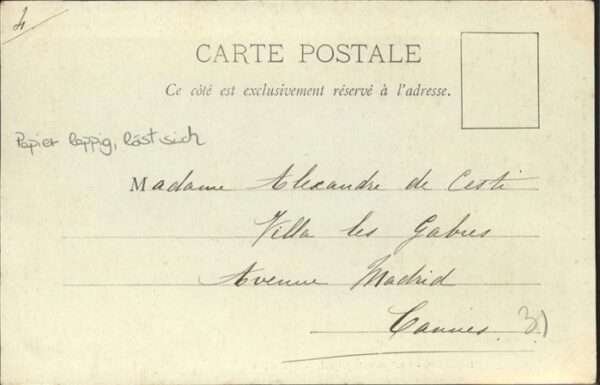 4
CARTE POSTALE
Ce côté est exclusivement réservé à l'adresse.
Papier lappig, löst sich
Madame Alexandre de Cesti
Villa les Gabres
Avenue Madrid
Cannes 3.)